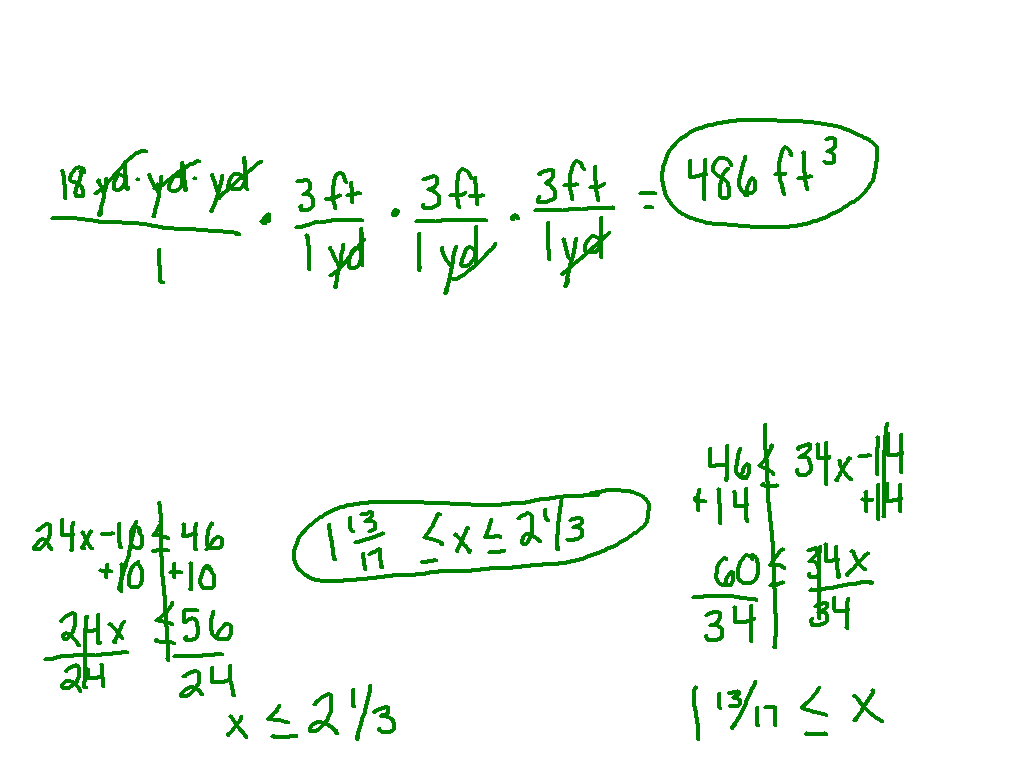 18 yd · yd · yd / 1 · 3 ft / 1 yd · 3 ft / 1 yd · 3 ft / 1 yd = 486 ft³
24x - 10 ≤ 46
+10 +10
24x ≤ 56
24 24
x ≤ 2 1/3
1 13/17 ≤ x ≤ 2 1/3
46 ≤ 34x - 14
+14 +14
60 ≤ 34x
34 34
1 13/17 ≤ x